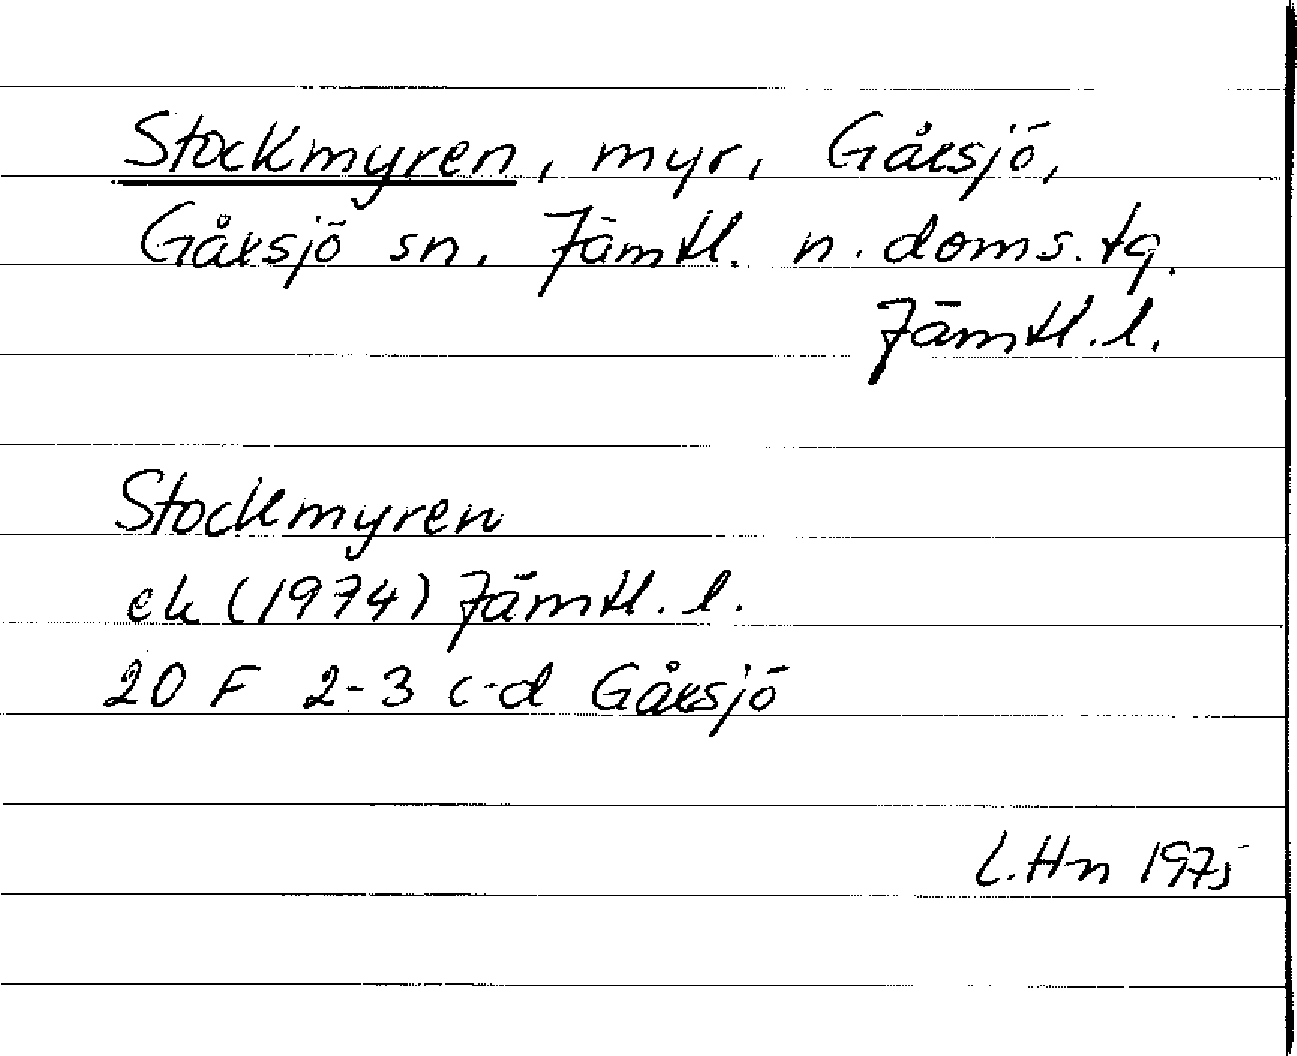 Stockmyren, myr, Gåxsjö,
Gåxsjö sn. Jämtl. n. doms. tg.
Jämtl. l.
Stockmyren
ek (1974) Jämtl. l.
20 F 2-3 c-d Gåxsjö
L. Hn 1975